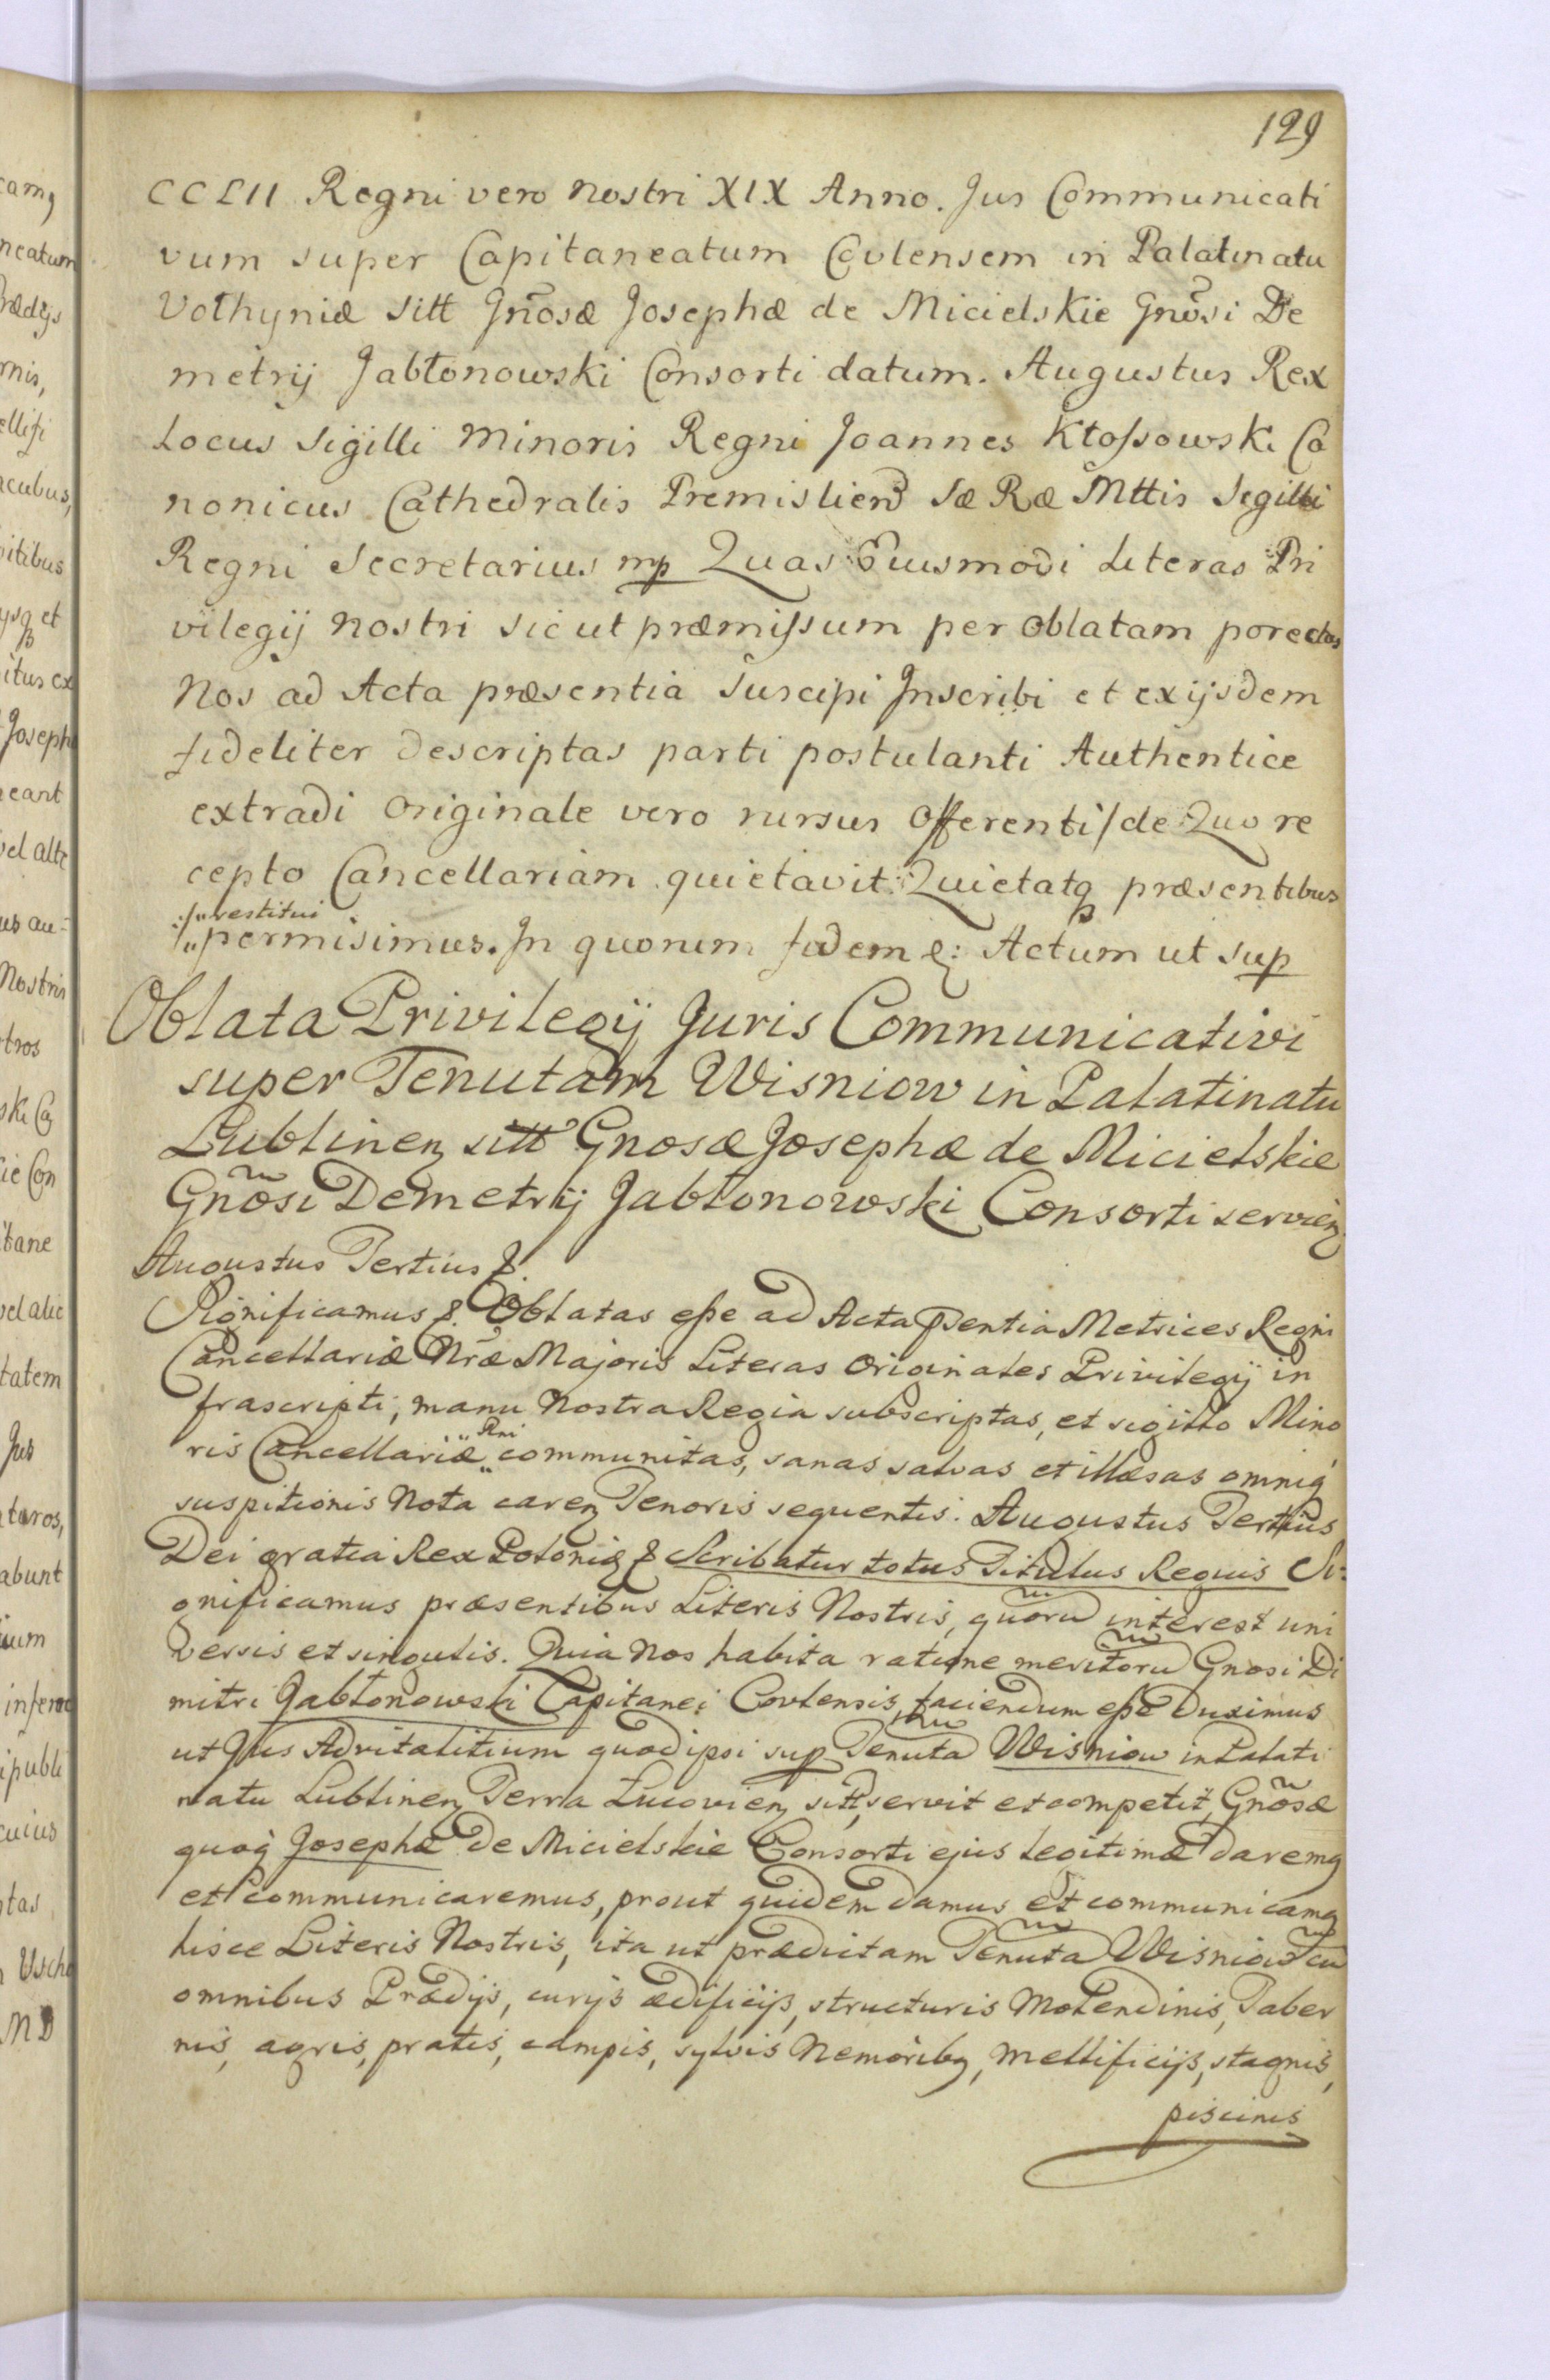 129
CCLII Regni vero nostri XIX Anno. Jus Communicati
vum super Capitaneatum Covlensem in Palatinatu
Volhyniæ sitt Gnosæ Josephæ de Micielskie Gnosi De
metrij Jabłonowski Consorti datum. Augustus Rex
Locus Sigilli Minoris Regni Joannes Kłossowski Ca
nonicus Cathedralis Premislien Sæ Ræ Mttis Sigilli
Regni Secretarius mp Quas Eiusmodi Literas Pri
vilegij nostri sicut præmissum per oblatam porectas
Nos ad Acta præsentia Suscipi Inscribi et ex ijsdem
fideliter descriptas parti postulanti Authentice
extradi originale vero rursus offerenti /de Quo re
cepto Cancellariam quietavit: Quietatq præsentibus
:/" restitui
"permisimus. In quorum fidem &: Actum ut sup
Oblata Privilegij Juris Communicativi
super Tenutam Wisniow in Palatinatu
Lublinen sitt Gnosæ Josephæ de Micielskie
Gnosi Demetrij Jabłonowski Consorti servien.
Augustus Tertius &.
Significamus &. Oblatas esse ad Acta pñsentia Metrices Regni
Cancellariæ Nræ Majoris Literas originales Privilegij in
frascripti, manu Nostra Regia subscriptas, et sigillo Mino
ris Cancellariæ " Rni " communitas, sanas salvas et illæsas omniq
suspitionis Nota caren Tenoris sequentis. Augustus Tertius
Dei gratia Rex Poloniæ & Scribatur totus Titulus Regius Si-
gnificamus præsentibus Literis Nostris, quoru interest uni
versis et singulis. Quia Nos habita ratione meritoru Gnosi Di
mitri Jabłonowski Capitanei Covlensis, faciendum esse Duximus
ut Jus Advitalitium quod ipsi sup Tenuta Wisniow in Palati
natu Lublinen Terra Lucovien sitt, servit et competit, Gnosæ
quoq Josephæ De Micielskie Consorti ejus legitimæ daremq
et communicaremus, prout quidem damus et communicamq
hisce Literis Nostris, ita ut prædictam Tenuta Wisniow cu
omnibus Prædijs, curijs ædificijs, structuris Molendinis, Taber
nis, agris, pratis, campis, sylvis Nemoribq, mellificijs, stagnis,
piscinis